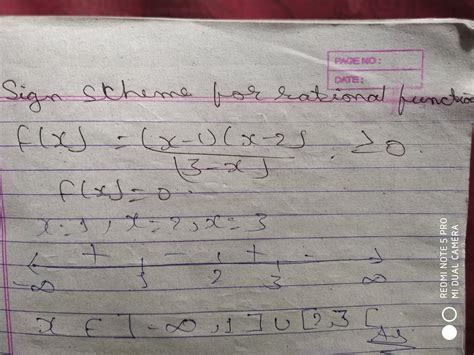 PAGE NO :
DATE :
Sign scheme for rational function
f(x) = (x-1)(x-2) ≥0.
(3-x)
f(x)=0.
x=1, x=2, x=3
+ - + -
-∞ 1 2 3 ∞
x ∈ ]-∞,1] ∪ [2,3[
Ans
REDMI NOTE 5 PRO
MI DUAL CAMERA